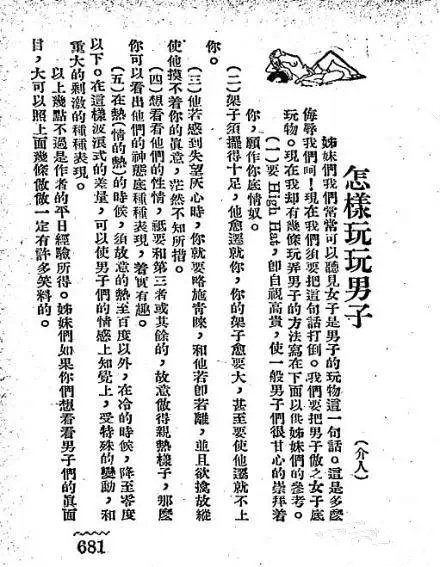 怎樣玩玩男子
（介人）
姊妹們我們常常可以聽見女子是男子的玩物這一句話。這是多麼
侮辱我們呵！現在我們須要把這句話打倒。我們要把男子做之女子底
玩物。現在我却有幾條玩弄男子的方法寫在下面以供姊妹們的參考。
（一）要High Hat，卽自視高貴，使一般男子們很甘心的崇拜着
你，願作你底情奴。
（二）架子須擺得十足，他愈遷就你，你的架子愈要大，甚至要使他遷就不上
你。
（三）他若感到失望灰心時，你就要略施靑睞，和他若卽若離，並且欲擒故縱
使他摸不着你的眞意，茫然不知所措。
（四）想看看他們的性情，祗要和第三者或其餘的，故意做得親熱樣子，那麼
你可以看出他們的神態底種種表現，着實有趣。
（五）在熱（情的熱）的時候，須故意的熱至百度以外，在冷的時候，降至零度
以下。在這樣波浪式的差量，可以使男子們的情感上知覺上，受特殊的變動，和
重大的剌激的種種表現。
以上幾點不過是作者的平日經驗所得。姊妹們如果你們想看看男子們的眞面
目，大可以照上面幾條做做一定有許多笑料的。
681